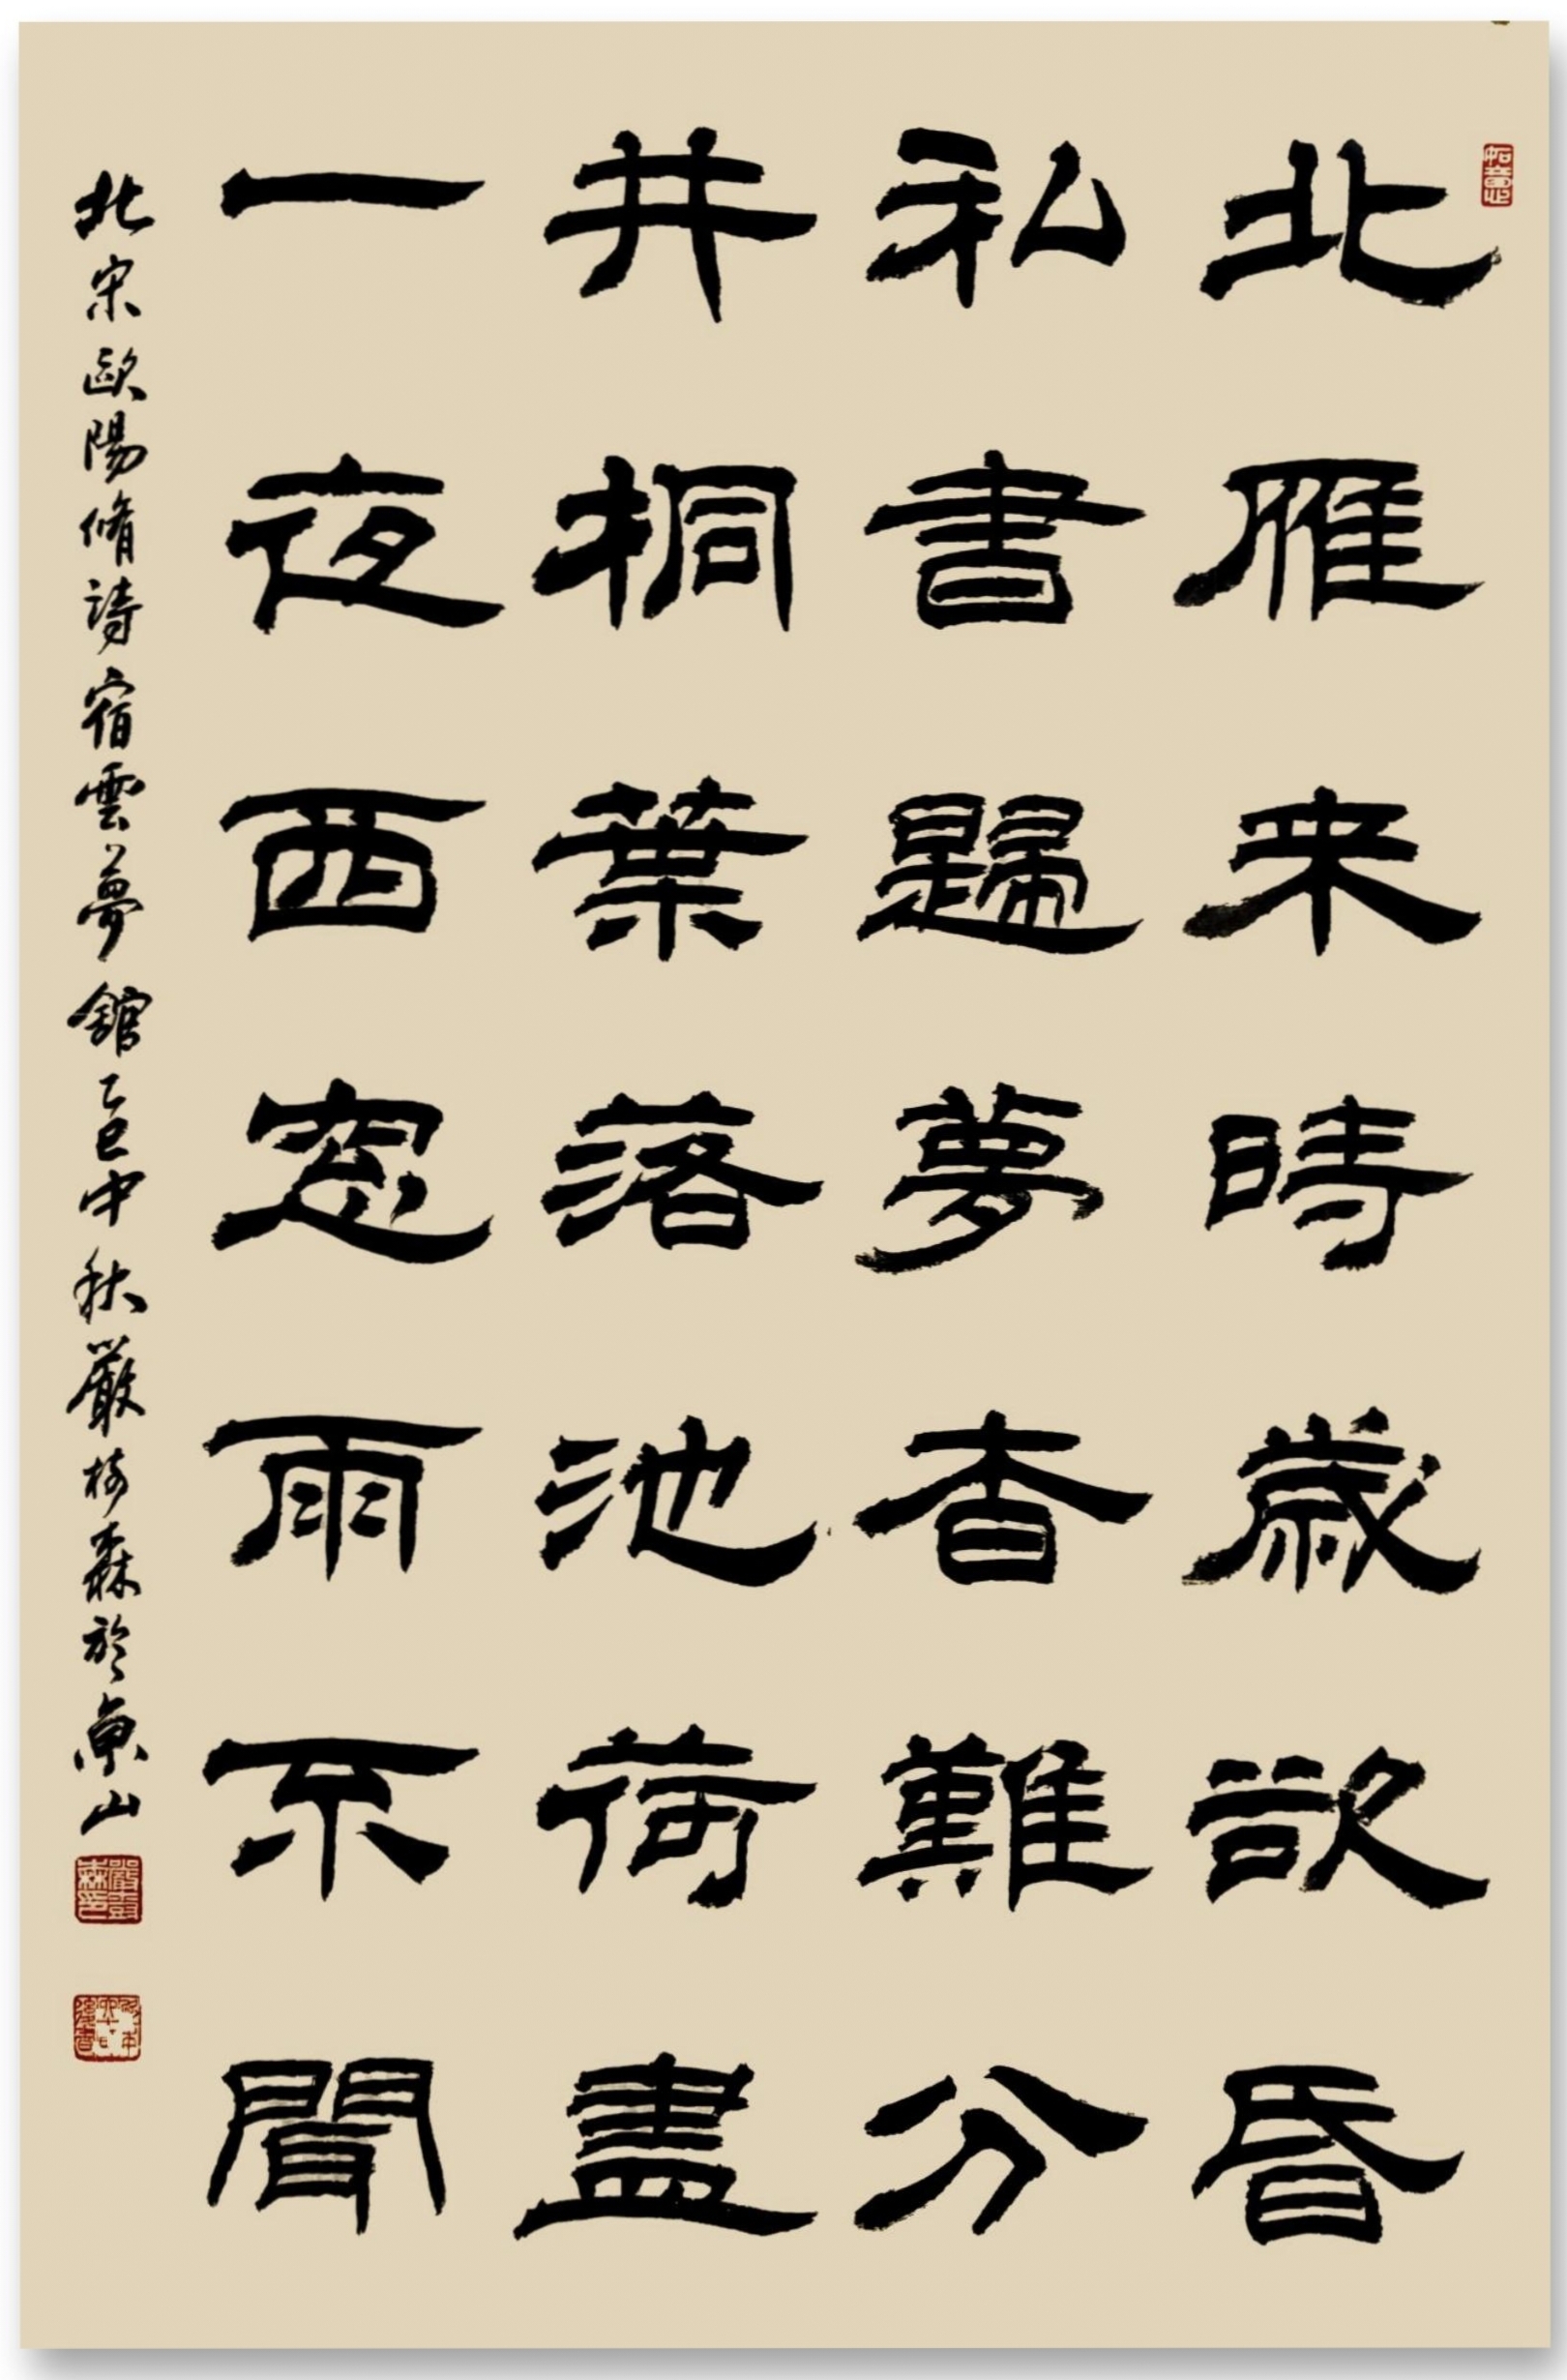 北雁来時歲欲昏
私書歸夢杳難分
井桐葉落池荷盡
一夜西窓雨不聞
北宋歐陽脩詩宿雲夢舘乙巳中秋嚴樹森於京山
嚴樹森印